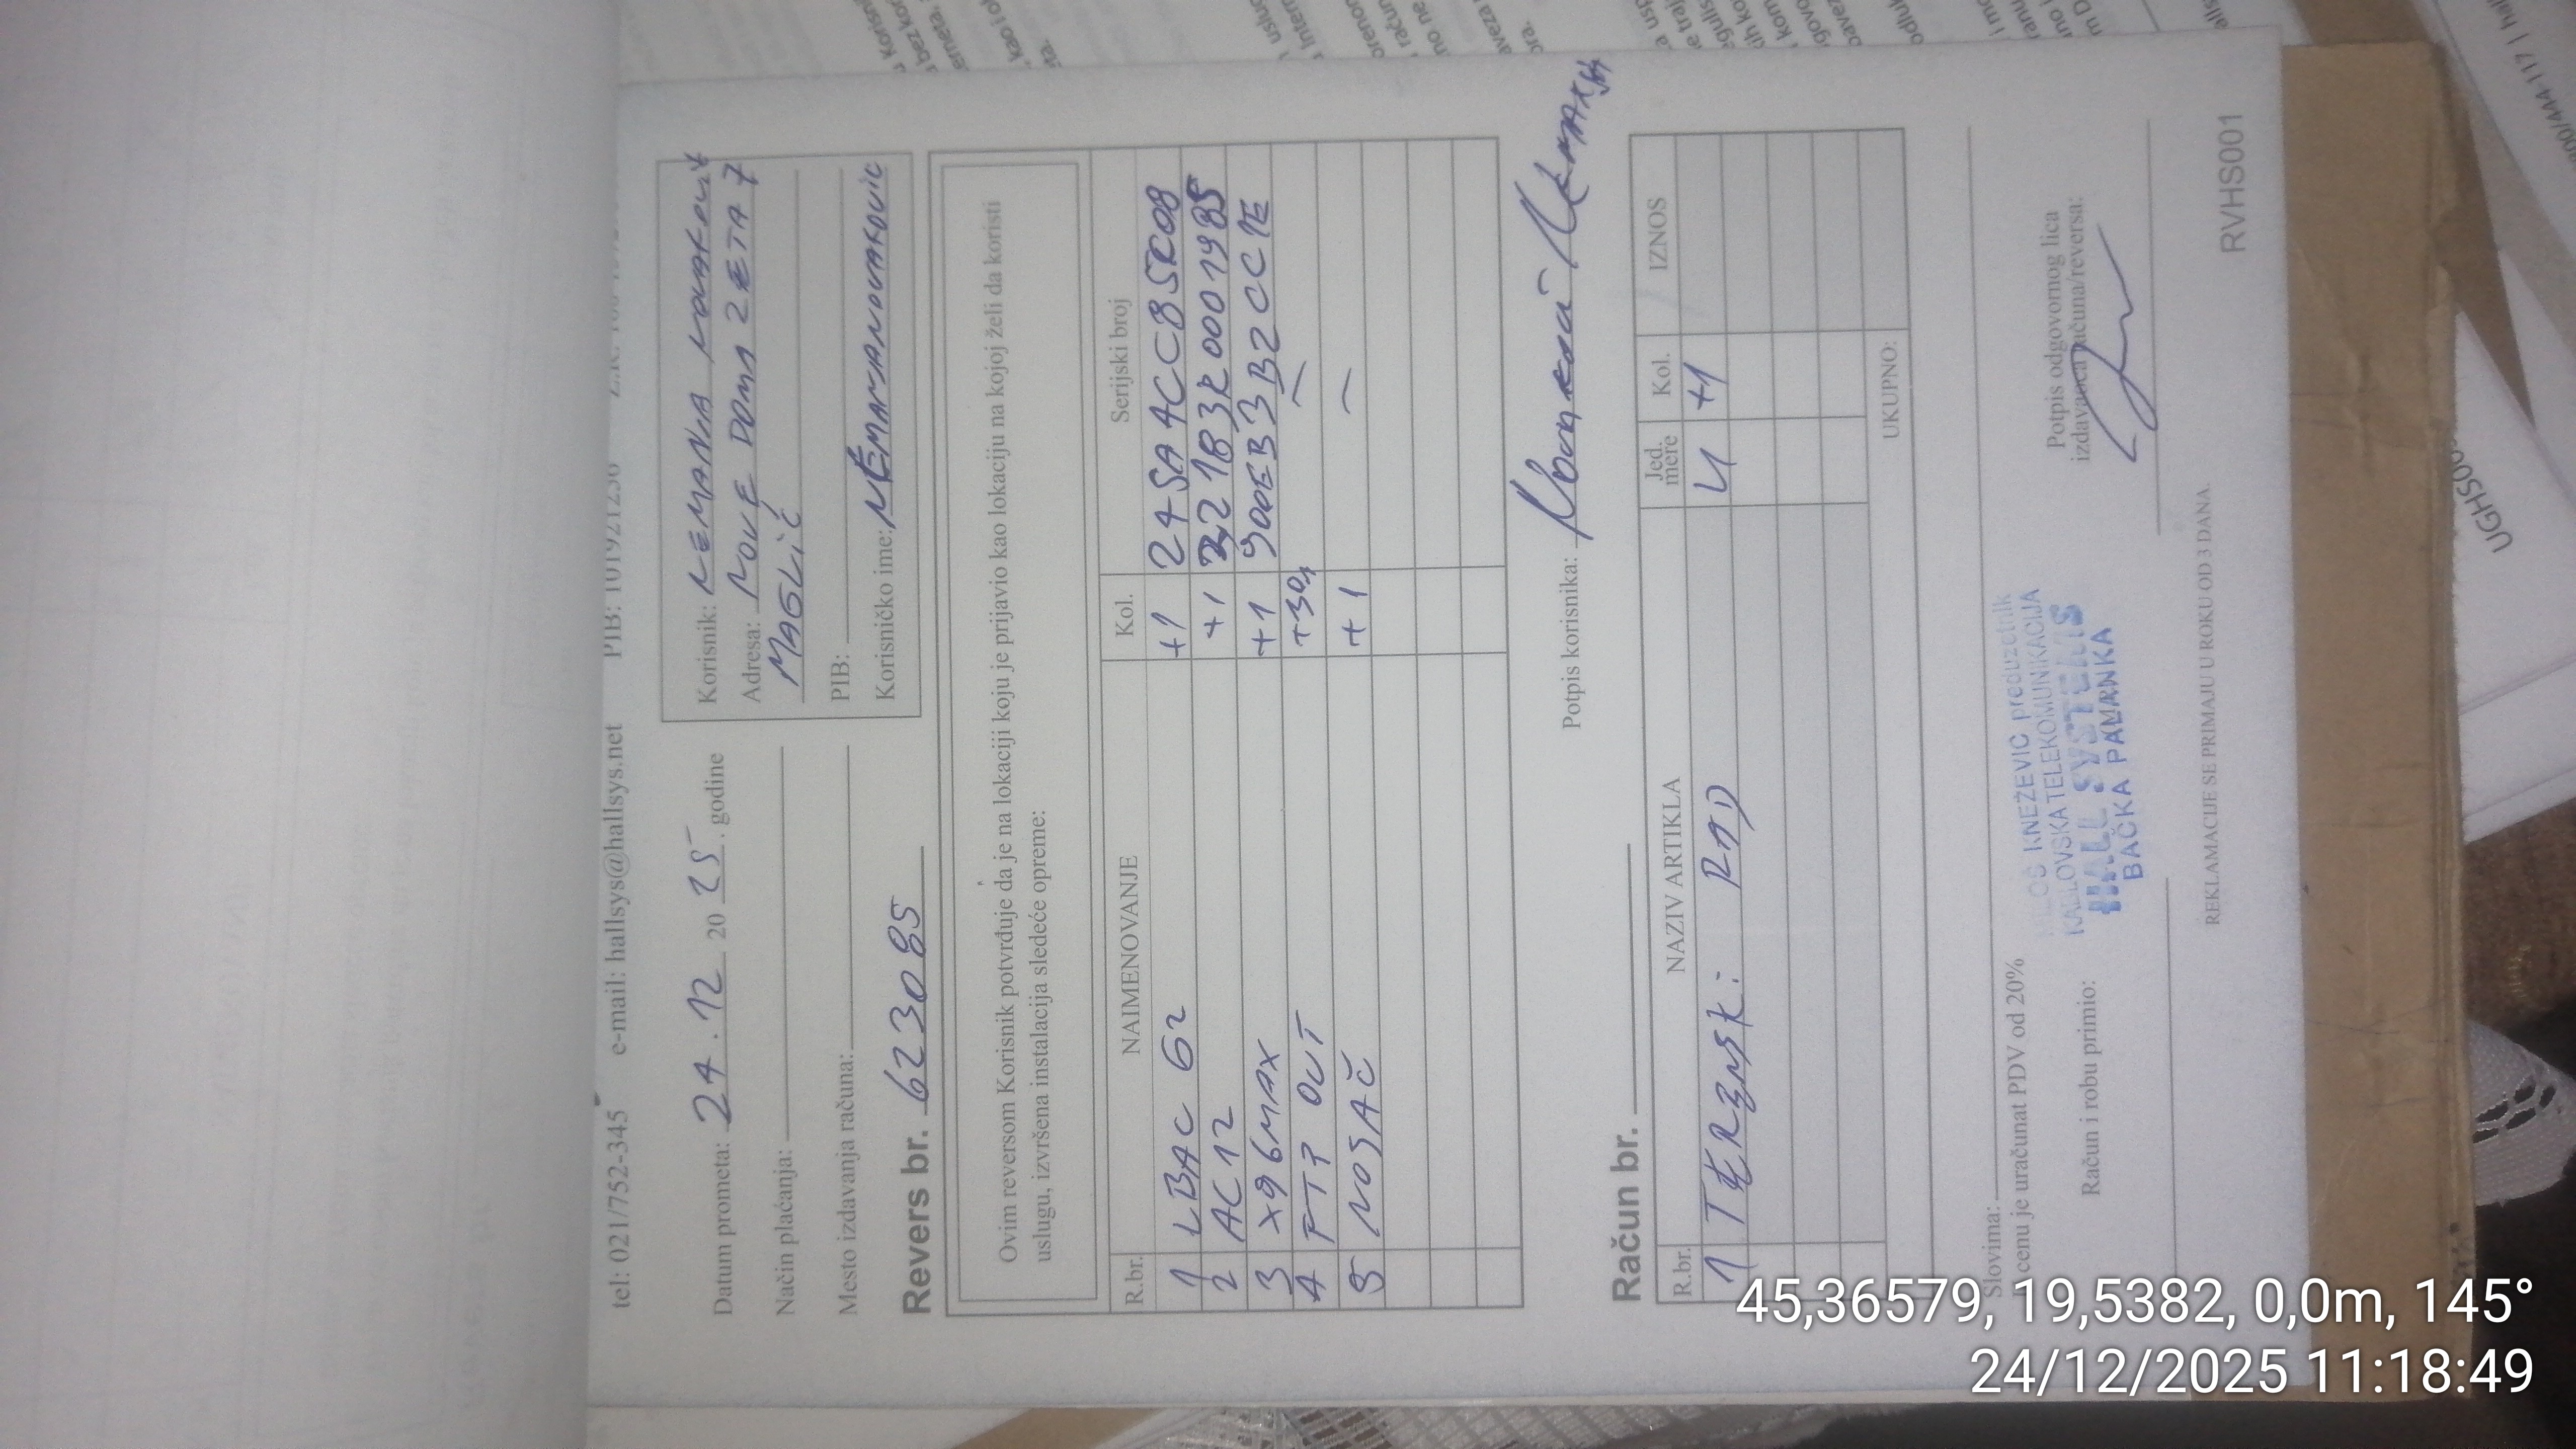 tel: 021/752-345 e-mail: hallsys@hallsys.net PIB: 101921230
Datum prometa: 24.12 20 25. godine
Način plaćanja:
Mesto izdavanja računa:
Korisnik: NEMANJA NOVAKOVIĆ
Adresa: NOVE DOMA ZETA 7
MAGLIĆ
PIB:
Korisničko ime: NEMANJANOVAKOVIC
Revers br. 623085
Ovim reversom Korisnik potvrđuje da je na lokaciji koju je prijavio kao lokaciju na kojoj želi da koristi
uslugu, izvršena instalacija sledeće opreme:
R.br. NAIMENOVANJE Kol. Serijski broj
1 LBAC G2 +1 245A4CCB5K08
2 AC12 +1 22183K0001985
3 X96MAX +1 900EB3B2CC1E
4 FTP OUT +30m —
5 NOSAČ +1 —
Potpis korisnika:
Račun br.
R.br. NAZIV ARTIKLA Jed. mere Kol. IZNOS
1 TERENSKI RAD U +1
UKUPNO:
Slovima:
U cenu je uračunat PDV od 20%
Račun i robu primio:
MILOŠ KNEŽEVIĆ preduzetnik
KABLOVSKA TELEKOMUNIKACIJA
HALL SYSTEMS
BAČKA PALANKA
Potpis odgovornog lica
izdavaoca računa/reversa:
REKLAMACIJE SE PRIMAJU U ROKU OD 3 DANA.
RVHS001
45,36579, 19,5382, 0,0m, 145°
24/12/2025 11:18:49